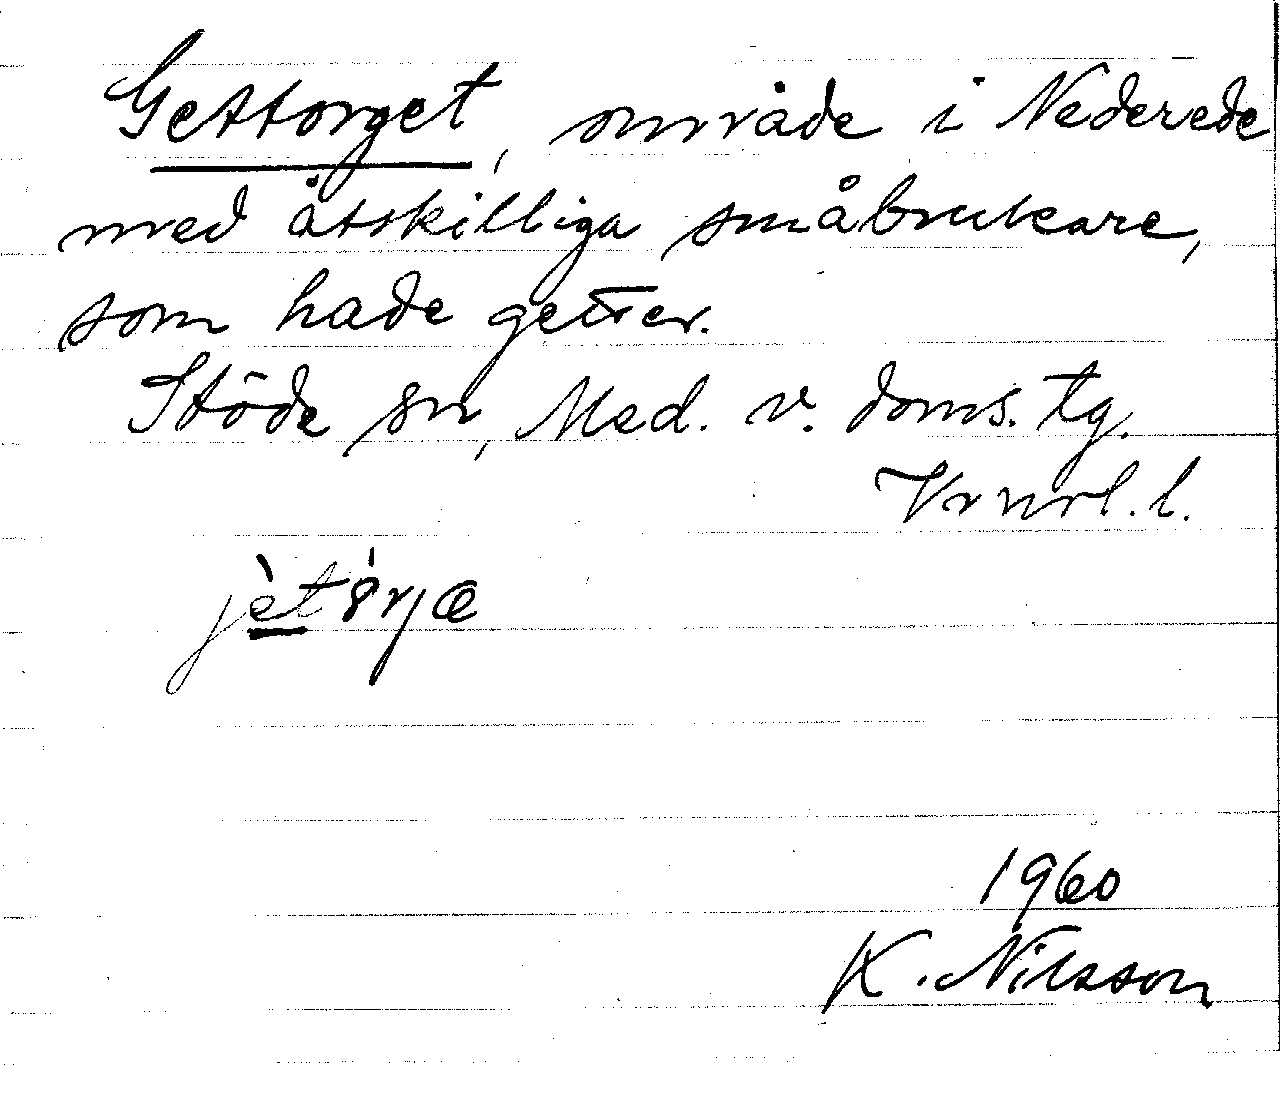 Gettorget, område i Nederede
med åtskilliga småbrukare,
som hade getter.
Stöde sn, Med. v. doms. tg.
Vrnrl. l.
1960
K. Nilsson